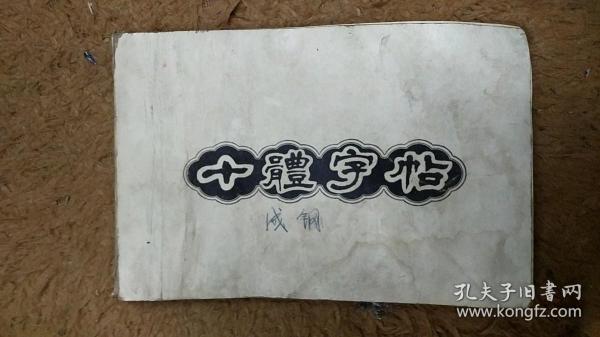 十體字帖
成钢
孔夫子旧書网
www.kongfz.com